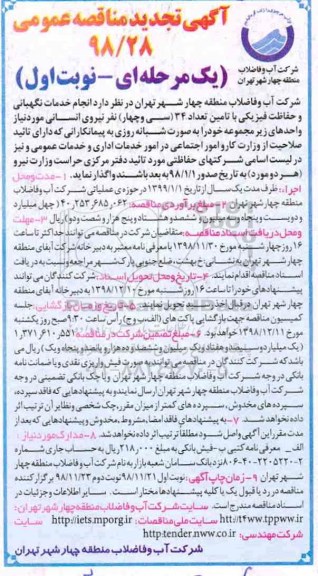 آگهی تجدید مناقصه عمومی
۹۸/۲۸
(یک مرحله ای - نوبت اول)
شرکت آب و فاضلاب
منطقه چهار شهر تهران
شرکت آب و فاضلاب منطقه چهار شهر تهران در نظر دارد انجام خدمات نگهبانی
و حفاظت فیزیکی با تامین تعداد ۳۴ (سی و چهار) نفر نیروی انسانی مورد نیاز
واحدهای زیر مجموعه خود را به صورت شبانه روزی به پیمانکارانی که دارای تائید
صلاحیت از وزارت کار و امور اجتماعی در امور خدمات اداری و خدمات عمومی و نیز
در لیست اسامی شرکتهای حفاظتی مورد تائید دفتر مرکزی حراست وزارت نیرو
(هر دو مورد) به تاریخ صدور ۹۸/۱/۱ به بعد باشند واگذار نماید. ۱- مدت و محل
اجراء: ظرف مدت یک سال از تاریخ ۱۳۹۹/۱/۱ در حوزه ی عملیاتی شرکت آب و فاضلاب
منطقه چهار شهر تهران ۲- مبلغ برآوردی مناقصه: ۴۰,۲۵۳,۶۸۵,۰۶۲ (چهل میلیارد
و دویست و پنجاه و سه میلیون و ششصد و هشتاد و پنج هزار و شصت و دو) ریال ۳- مهلت
و محل دریافت اسناد مناقصه: متقاضیان شرکت در مناقصه می توانند حداکثر تا ساعت
۱۶ روز چهارشنبه مورخ ۱۳۹۸/۱۱/۳۰ با معرفی نامه معتبر به دبیرخانه شرکت آبفای منطقه
چهار شهر تهران به نشانی خ بهشت، ضلع جنوبی پارک شهر مراجعه و نسبت به دریافت
اسناد مناقصه اقدام نمایند. ۴- تاریخ و محل تحویل اسناد: شرکت کنندگان می توانند
پیشنهادهای خود را تا ساعت ۱۶ روز شنبه مورخ ۱۳۹۸/۱۲/۱۰ به دبیرخانه شرکت آبفای منطقه
چهار شهر تهران در قبال اخذ رسید تحویل نمایند. ۵- تاریخ و زمان بازگشایی: جلسه
کمیسیون مناقصه جهت بازگشایی پاکت های (الف، ب و ج) رأس ساعت ۱۳:۳۰ روز یکشنبه
مورخ ۱۳۹۸/۱۲/۱۱ خواهد بود. ۶- مبلغ تضمین شرکت در مناقصه: ۱,۳۷۱,۶۱۰,۵۵۱
(یک میلیارد و سیصد و هفتاد و یک میلیون و ششصد و ده هزار و پانصد و پنجاه و یک) ریال می
باشد که شرکت کنندگان در مناقصه می توانند به صورت فیش واریزی نقدی و یا ضمانت نامه
بانکی در وجه شرکت آب و فاضلاب منطقه چهار شهر تهران و یا چک بانکی تضمینی در وجه
شرکت آب و فاضلاب منطقه چهار شهر تهران ارسال نمایند و به پیشنهادهایی که فاقد سپرده،
سپرده های مخدوش، سپرده های کمتر از میزان مقرر، چک شخصی و نظایر آن ترتیب اثر
داده نخواهد شد. ۷- به پیشنهادهای فاقد امضا، مشروط، مخدوش و پیشنهادهایی که بعد از
مدت مقرر این آگهی واصل شود مطلقا ترتیب اثر داده نخواهد شد. ۸- مدارک مورد نیاز:
الف_ معرفی نامه کتبی ب- فیش بانکی به مبلغ ۲۱۸,۰۰۰ ریال به حساب جاری شماره
نزد بانک سامان شعبه بازار به نام شرکت آب و فاضلاب منطقه چهار
شهر تهران ۹- زمان چاپ آگهی: نوبت اول ۹۸/۱۱/۲۱ نوبت دوم ۹۸/۱۱/۲۳ برگزار کننده
مناقصه در رد یا قبول یک یا کلیه پیشنهادها مختار است. سایر اطلاعات و جزئیات در
اسناد مناقصه مندرج است. سایت شرکت آب و فاضلاب منطقه چهار شهر تهران:
htt://t4ww.tppww.ir سایت ملی مناقصات: http://iets.mporg.ir سایت
شرکت مهندسی: http:tender.nww.co.ir
شرکت آب و فاضلاب منطقه چهار شهر تهران